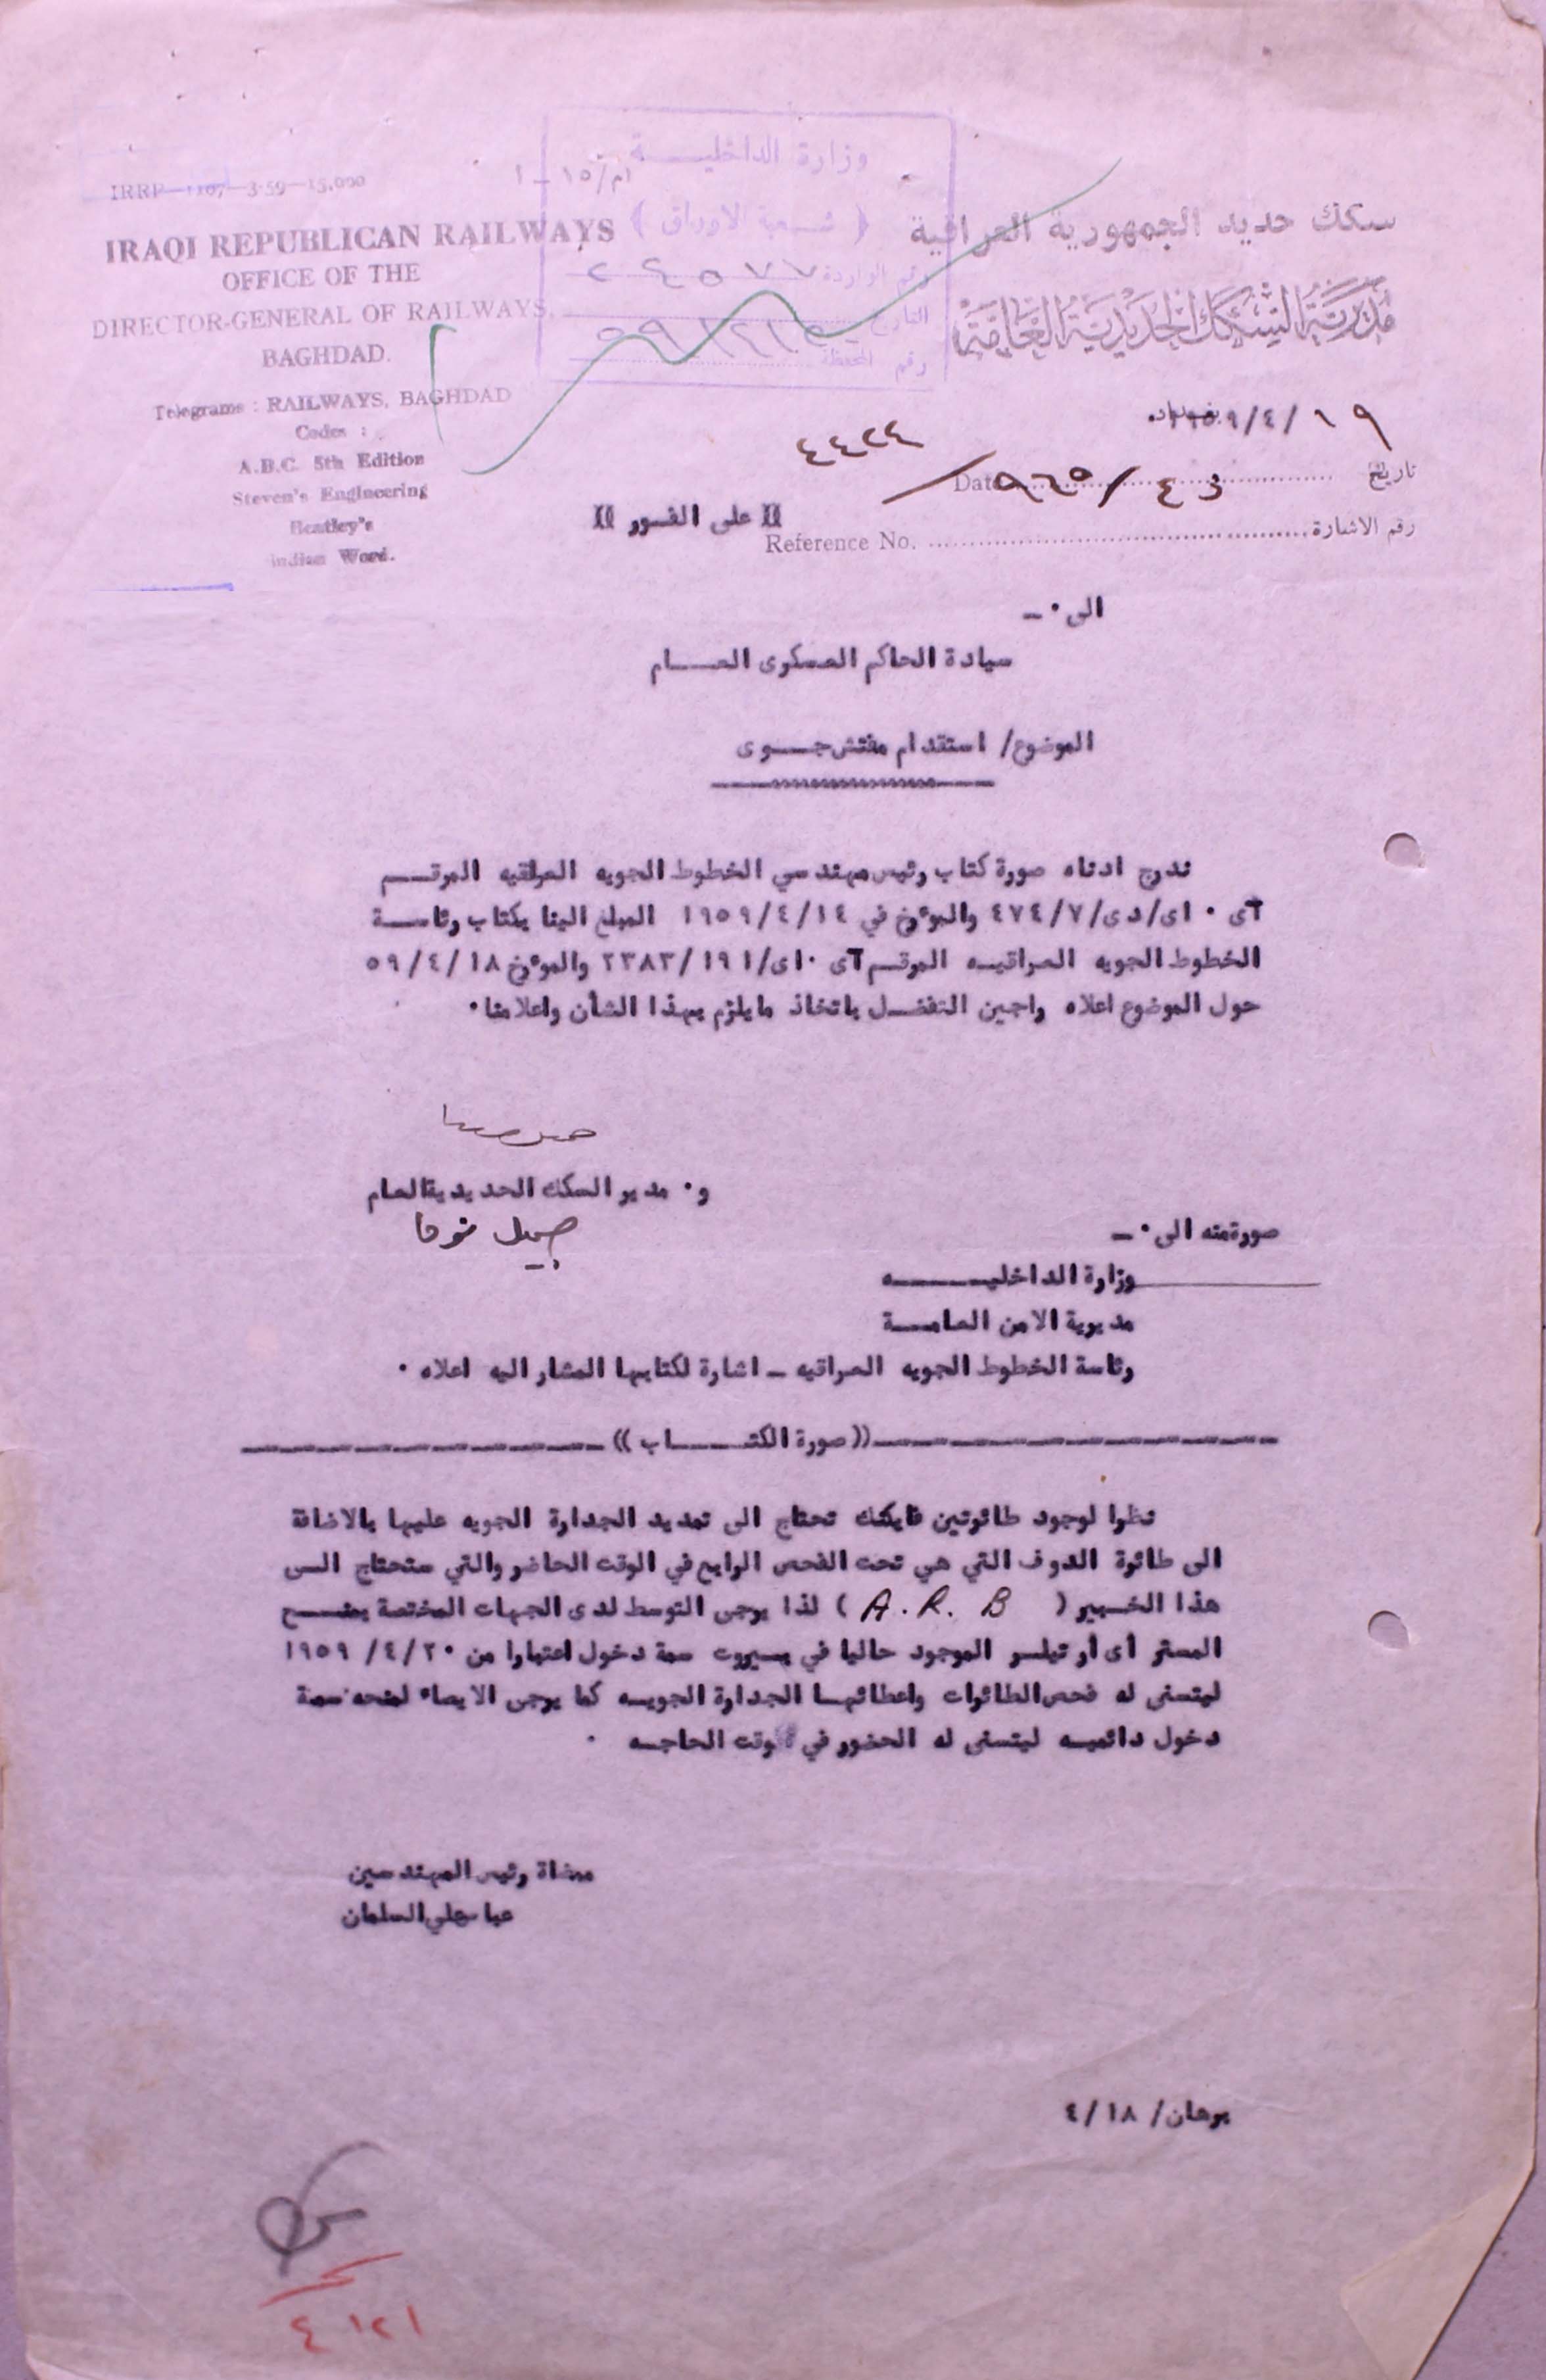 وزارة الداخليـــة
ام/١٥ - ١
( شـعبة الاوراق )
رقم الواردة ٢٤٥٧٧
التاريخ
رقم المحفظة
IRRP—1107—3-59—15,000
IRAQI REPUBLICAN RAILWAYS
OFFICE OF THE
DIRECTOR-GENERAL OF RAILWAYS,
BAGHDAD.
Telegrams : RAILWAYS, BAGHDAD
Codes :
A.B.C. 5th Edition
Steven's Engineering
Bentley's
Indian Word.
سكك حديد الجمهورية العراقية
مديرية السكك الحديدية العامة
١٩/٤/١٩٥٩
تاريخ Date
٤٤٢٤
رقم الاشارة Reference No.
(( على الفـور ))
الى ٠ ـ
سيادة الحاكم العسكرى العـــام
الموضوع/ استقدام مفتش جـــوى
ندرج ادناه صورة كتاب رئيس مهندسي الخطوط الجويه العراقيه المرقـــم
آى ٠ اى/دى/٤٧٤/٧ والموءرخ في ١٩٥٩/٤/١٤ المبلغ الينا بكتاب رئاســة
الخطوط الجويه العراقيـه المرقـم آى ٠اى/١٩١/٢٣٨٣ والموءرخ ٥٩/٤/١٨
حول الموضوع اعلاه راجين التفضـل باتخاذ مايلزم بهذا الشأن واعلامنا٠
و٠ مدير السكك الحديديةالعام
جميل نوحا
صورةمنه الى ٠ ـ
وزارة الداخليـــــــه
مديرية الامن العامـــة
رئاسة الخطوط الجويه العراقيه ـ اشارة لكتابها المشار اليه اعلاه ٠
((صورة الكتـــــاب))
نظرا لوجود طائرتين فايكنك تحتاج الى تمديد الجدارة الجويه عليها بالاضافة
الى طائرة الدوف التي هي تحت الفحص الرابع في الوقت الحاضر والتي ستحتاج الـى
هذا الخـبير ( A. R. B ) لذا يرجى التوسط لدى الجهات المختصة بمنــح
المستر أى أر تيلـر الموجود حاليا في بـيروت سمة دخول اعتبارا من ٢٠ /٤/ ١٩٥٩
ليتسنى له فحص الطائرات واعطائهــا الجدارة الجويــه كما يرجى الايصاء لمنحه سمة
دخول دائميـه ليتسنى له الحضور في وقت الحاجــه ٠
ممضاة رئيس المهندسين
عباس علي السلمان
برهان/ ٤/١٨
٤١٢١